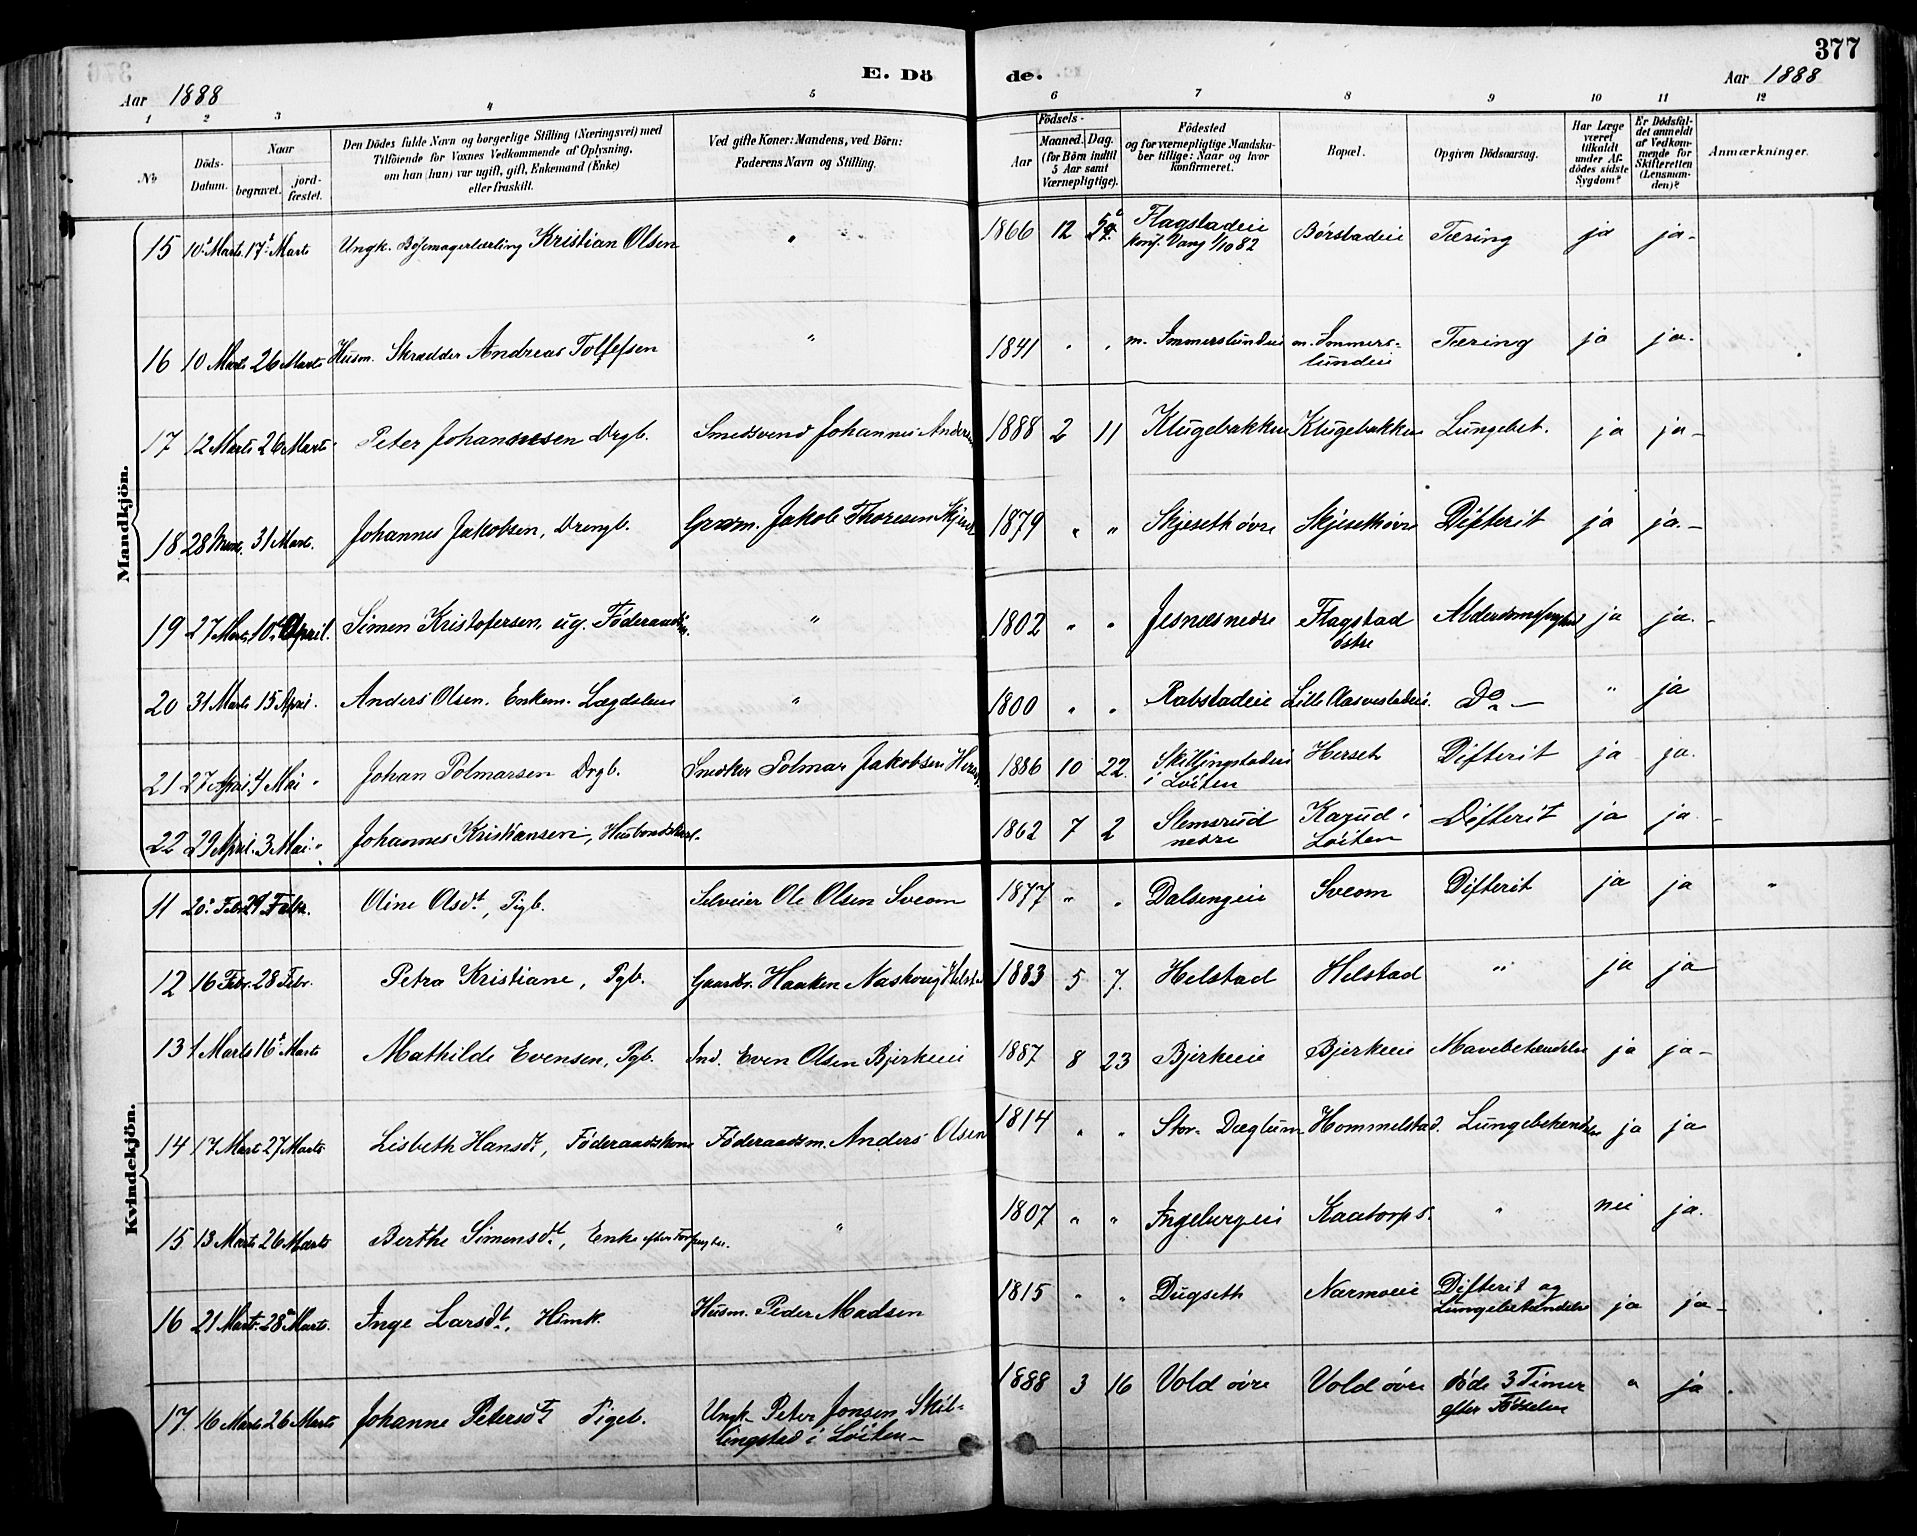 377
E. Dö de.
Aar 1888
Aar 1888
1 2 3 4 5 6 7 8 9 10 11 12
No
Döds-Datum.
Naar
begravet.
jord-fæstet.
Den Dödes fulde Navn og borgerlige Stilling (Næringsvei) med
Tilföiende for Voxnes Vedkommende af Oplysning,
om han (hun) var ugift, gift, Enkemand (Enke)
eller fraskilt.
Ved gifte Koner: Mandens, ved Börn:
Faderens Navn og Stilling.
Födsels-
Aar
Maaned. Dag.
(for Börn indtil
5 Aar samt
Værnepligtige).
Födested
og for værnepligtige Mandska-
ber tillige: Naar og hvor
konfirmeret.
Bopæl.
Opgiven Dödsaarsag.
Har Læge
været
tilkaldt
under Af-
dödes sidste
Sygdom?
Er Dödsfal-
det anmeldt
af Vedkom-
mende for
Skifteretten
(Lensman-
den)?
Anmærkninger.
Mandkjön.
15 10de Marts 17de Marts Ungk. Kristian Olsen " 1866 12 Flagstadeie Børstadeie Tæring ja ja-
konf. Vang 1/10 82
16 10 Marts 26 Marts Husm. Skrædder Andreas Tollefsen " 1841 " " m. Immerslundeie m. Immers-
lundeie Tæring ja ja-
17 12 Marts 26 Marts Peter Johannesen Drgb. Smedsvend Johannes Andersen 1888 2 11 Klugebakken Klugebakken Lungebet. ja ja-
18 28 Marts 31 Marts. Johannes Jakobsen, Drengb. Jakob Thoresen 1879 " " Skjeseth øvre Skjeseth øvre Difterit ja ja-
19 27 Marts 10de April. Simen Kristofersen, ug. Föderaadsm. " 1802 " " Jesnæs nedre Flagstad
østre ja ja-
20 31 Marts 15 April. Anders Olsen. Enkem. Lægdslem " 1800 " " Rabstadeie Lille Do - " ja
21 27 April 4 Mai " Johan Polmarsen Drgb. Snedker Polmar Jakobsen 1886 10 22. Skillingstadeie
i Løiten Herset Difterit ja ja.
22 29 April. 3 Mai " Johannes Kristiansen, Husbondskarl. 1862 7 2 Slemsrud
nedre Karud i
Løiten Difterit ja ja.
Kvindekjön.
11 20de Febr. 29 Febr. Oline Olsdt, Pigb. Selveier Ole Olsen Sveom 1877 " " Dalsengeie Sveom Difterit ja ja "
12 16 Febr. 28 Febr. Petra Kristiane, Pgb. Gaardbr. Haaken 1883 5 7. Helstad Helstad " ja ja
13 1 Marts 16de Marts Mathilde Evensen, Pgb. Ind. Even Olsen Bjerkeeie 1887 8 23 Bjerkeeie Bjerkeeie Mavebetændelse ja ja-
14 17 Marts 27 Marts Lisbeth Hansdt, Föderaadskone Föderaadsm. Anders Olsen 1814 " " Stor- Dæglum Hommelstad. Lungebetændelse ja ja
15 13 Marts 26 Marts Berthe Simensdt, Enke efter " 1807 " " Ingebergeie Kaatorps. " nei ja.
16 21 Marts. 28de Marts. Inge Larsdt, Hsmk. Husm. Peder Madsen 1815 " " Dugseth Narmoeie Difterit og
Lungebetændelse ja ja-
17. 16 Marts 26 Marts Johanne Petersdt Pigeb. Ungk. Peter Jonsen Skil-
lingstad i Løiten- 1888 3 16 Vold øvre Vold øvre døde 3 Timer
efter Fødselen " ja.